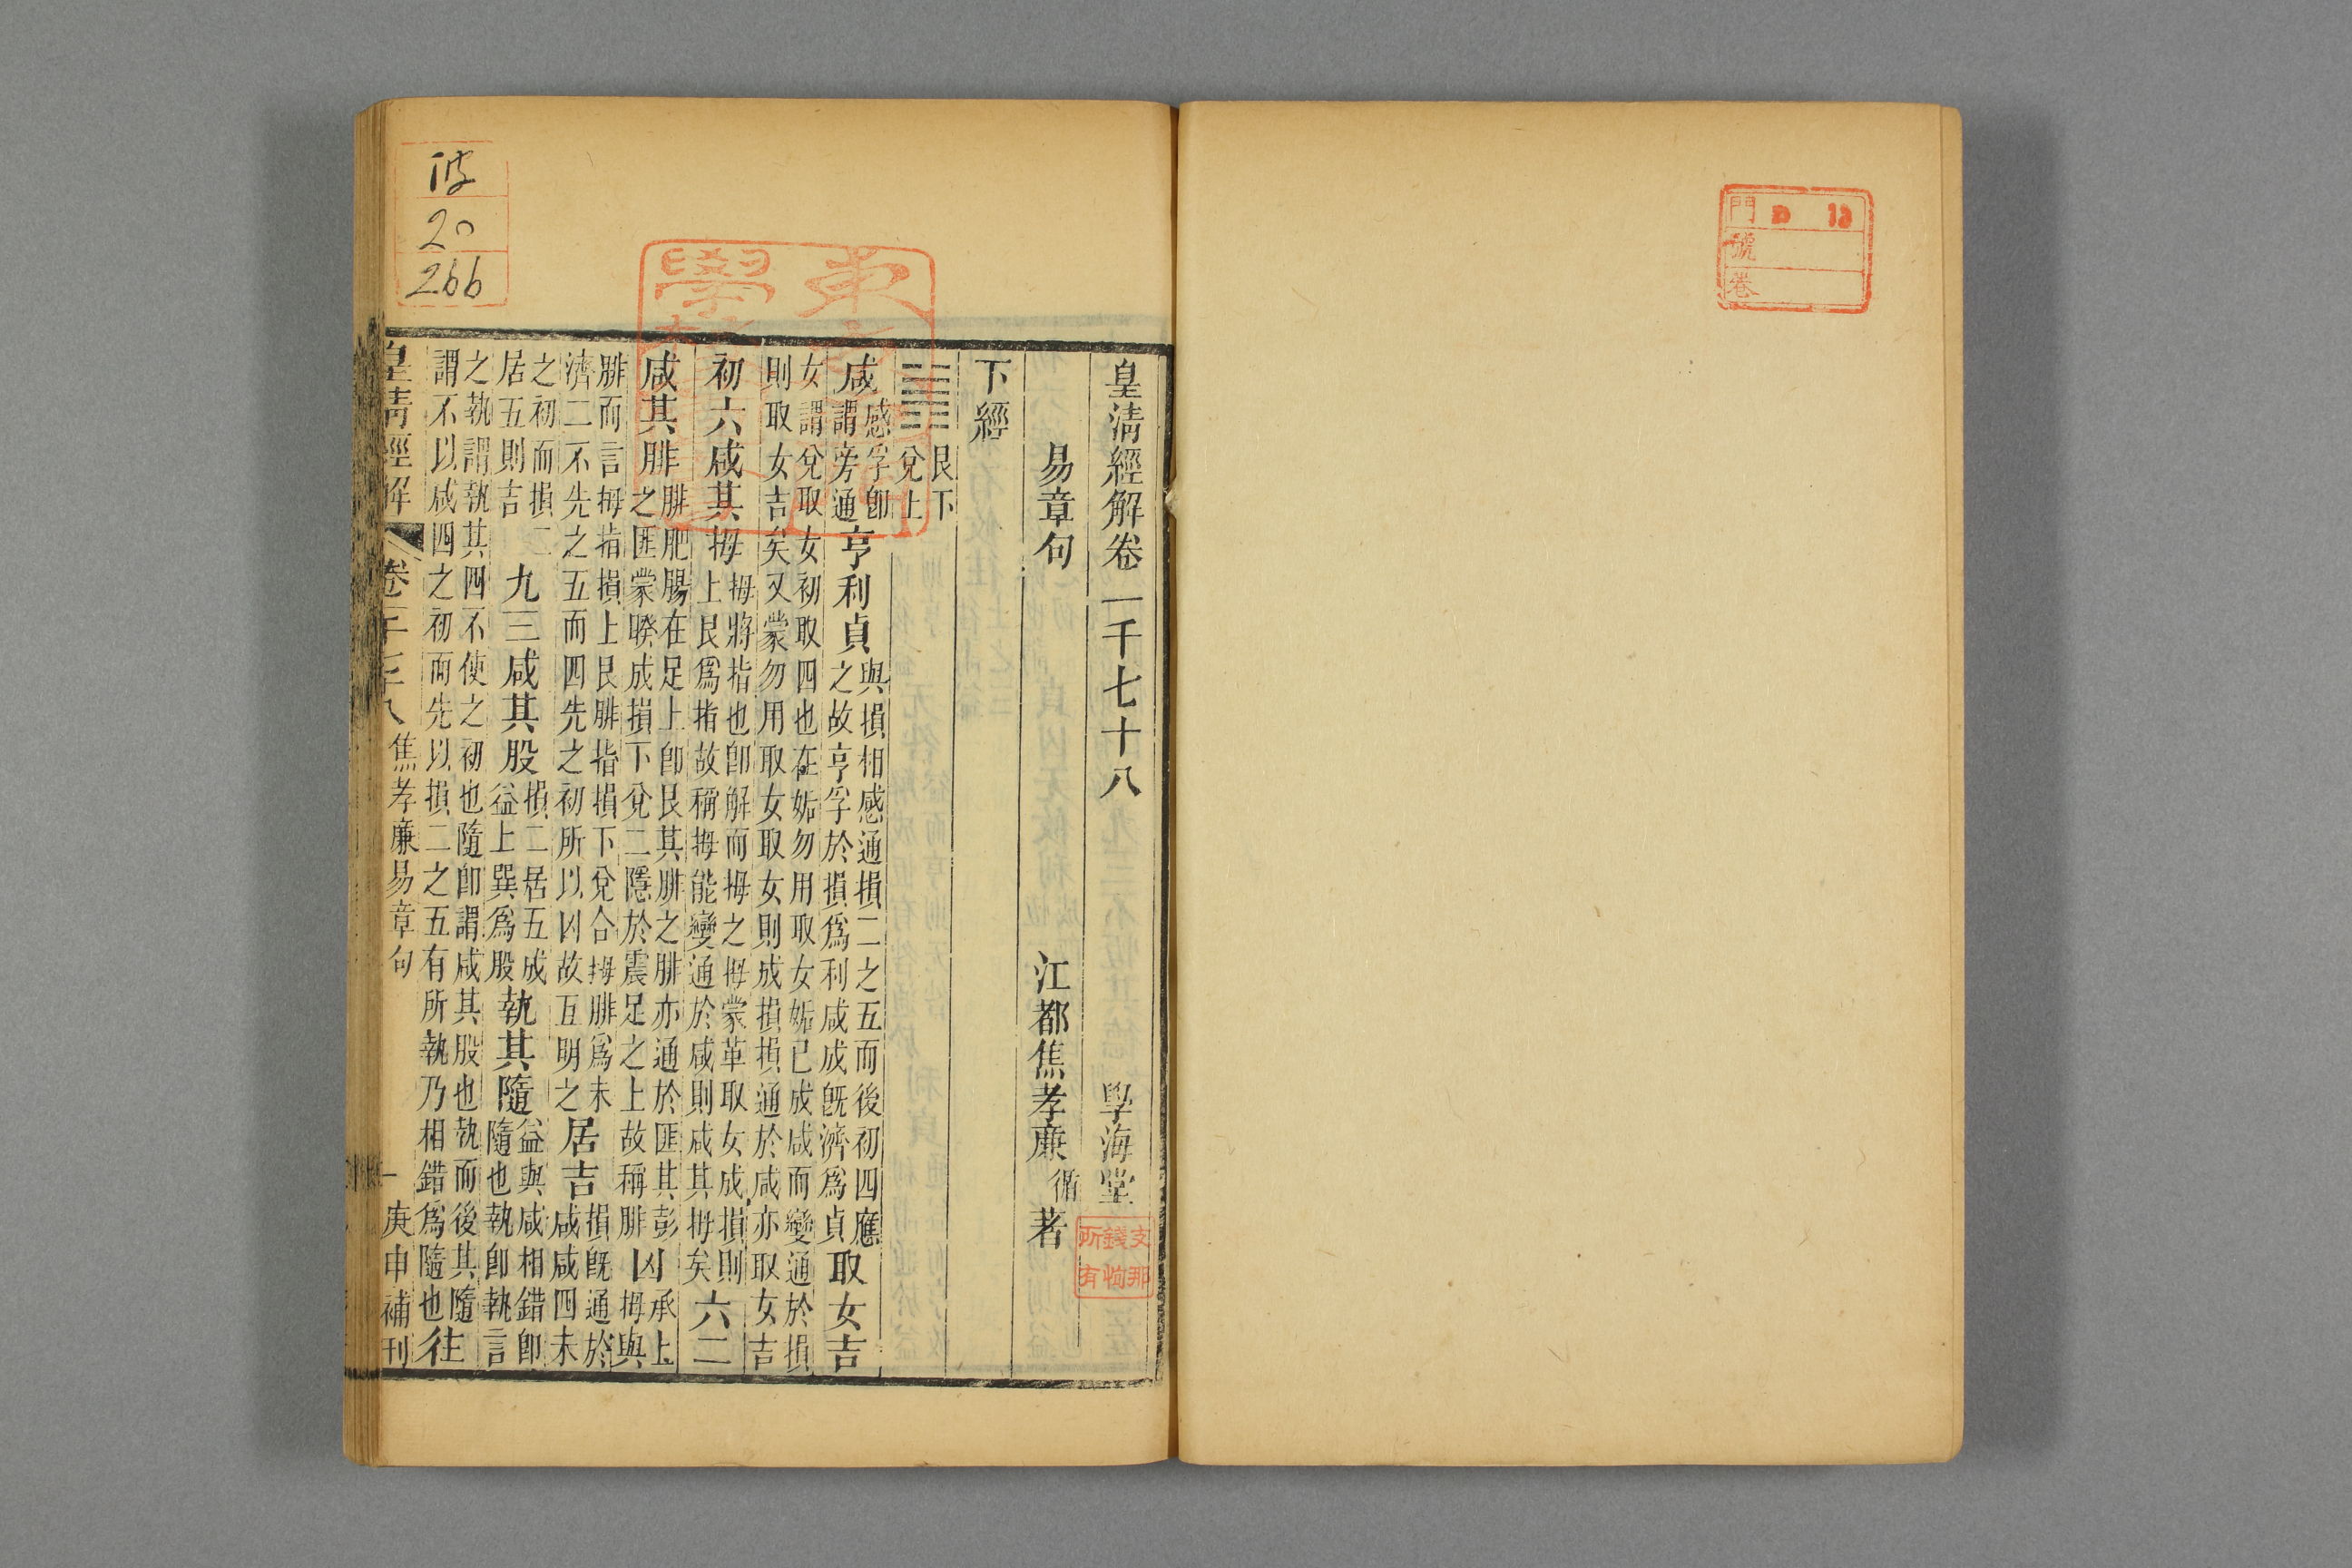 門 D 13
號
卷
皇清經解卷一千七十八
學海堂
易章句
江都焦孝廉循著
下經
艮下
兌上
咸感孚卽謂旁通亨利貞與損相感通損二之五而後初四應之故亨孚於損爲利咸成旣濟爲貞取女吉
女謂兌取女初取四也在姤勿用取女姤已成咸而變通於損
則取女吉矣又蒙勿用取女取女則成損損通於咸亦取女吉
初六咸其拇拇將指也卽解而拇之拇蒙革取女成損則上艮爲指故稱拇能變通於咸則咸其拇矣六二
咸其腓腓肥腸在足上卽艮其腓之腓亦通於匪其彭之匪蒙睽成損下兌二隱於震足之上故稱腓凶承上拇與
腓而言拇指損上艮腓指損下兌合拇腓爲未
濟二不先之五而四先之初所以凶故互明之居吉損旣通於咸咸四未
之初而損二居五則吉九三咸其股損二居五成益上巽爲股執其隨益與咸相錯卽隨也執卽執言
之執謂執其四不使之初也隨卽謂咸其股也執而後其隨
謂不以咸四之初而先以損二之五有所執乃相錯爲隨也往
皇清經解
焦孝廉易章句
一
庚申補刊
支那
錢恂
所有
彼
20
266